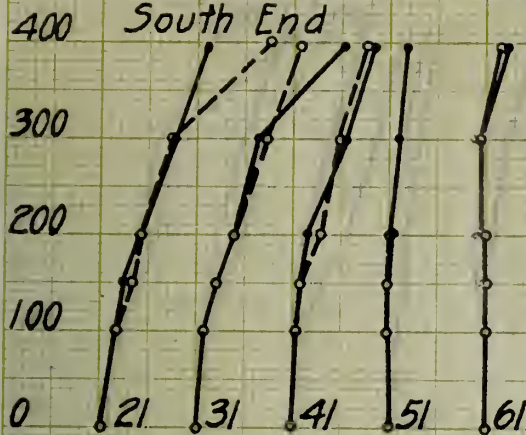 South End
400
300
200
100
0 21 31 41 51 61